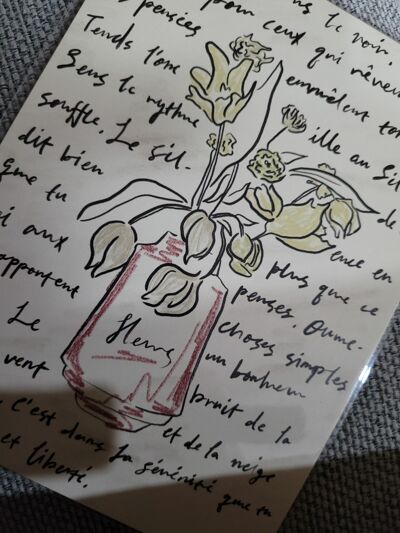 ns le noir,
pensées pour ceux qui rêvent
Tends l'ore
Sens le rythme emmêlent ton
souffle. Le sil- ille au sil
dit bien de
que tu ence en
i aux plus que ce
apportent penses. Ouvre-
Le fleurs choses simples
vent un bonheur
bruit de la
et de la neige
, c'est dans la sérénité que tu
et liberté.